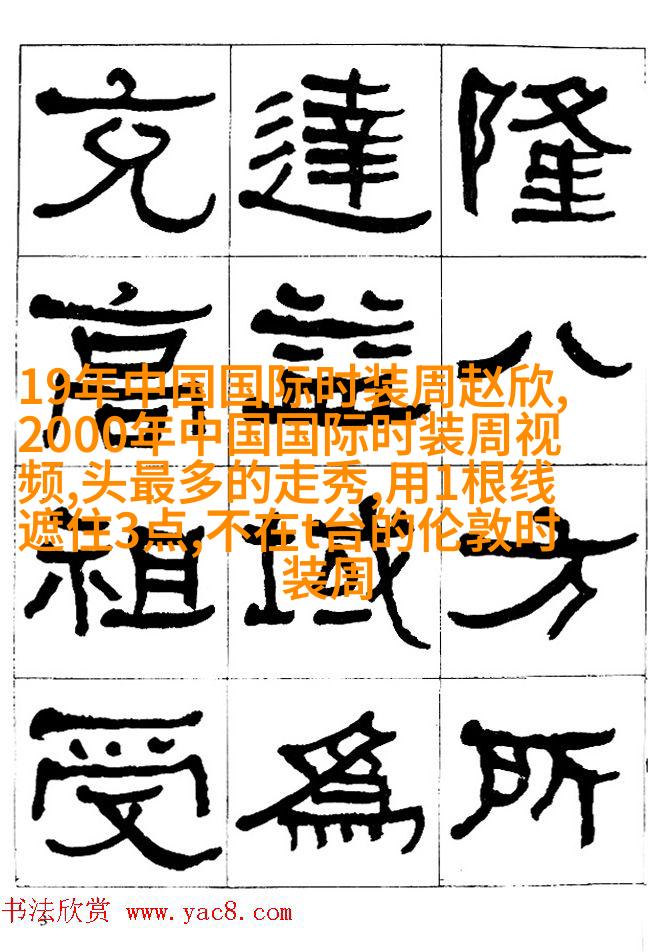 隆八方所
達益域為
充高祖受
19年中国国际时装周赵欣,
2000年中国国际时装周视
频,头最多的走秀,用1根线
遮住3点,不在t台的伦敦时
装周
书法欣赏 www.yac8.com